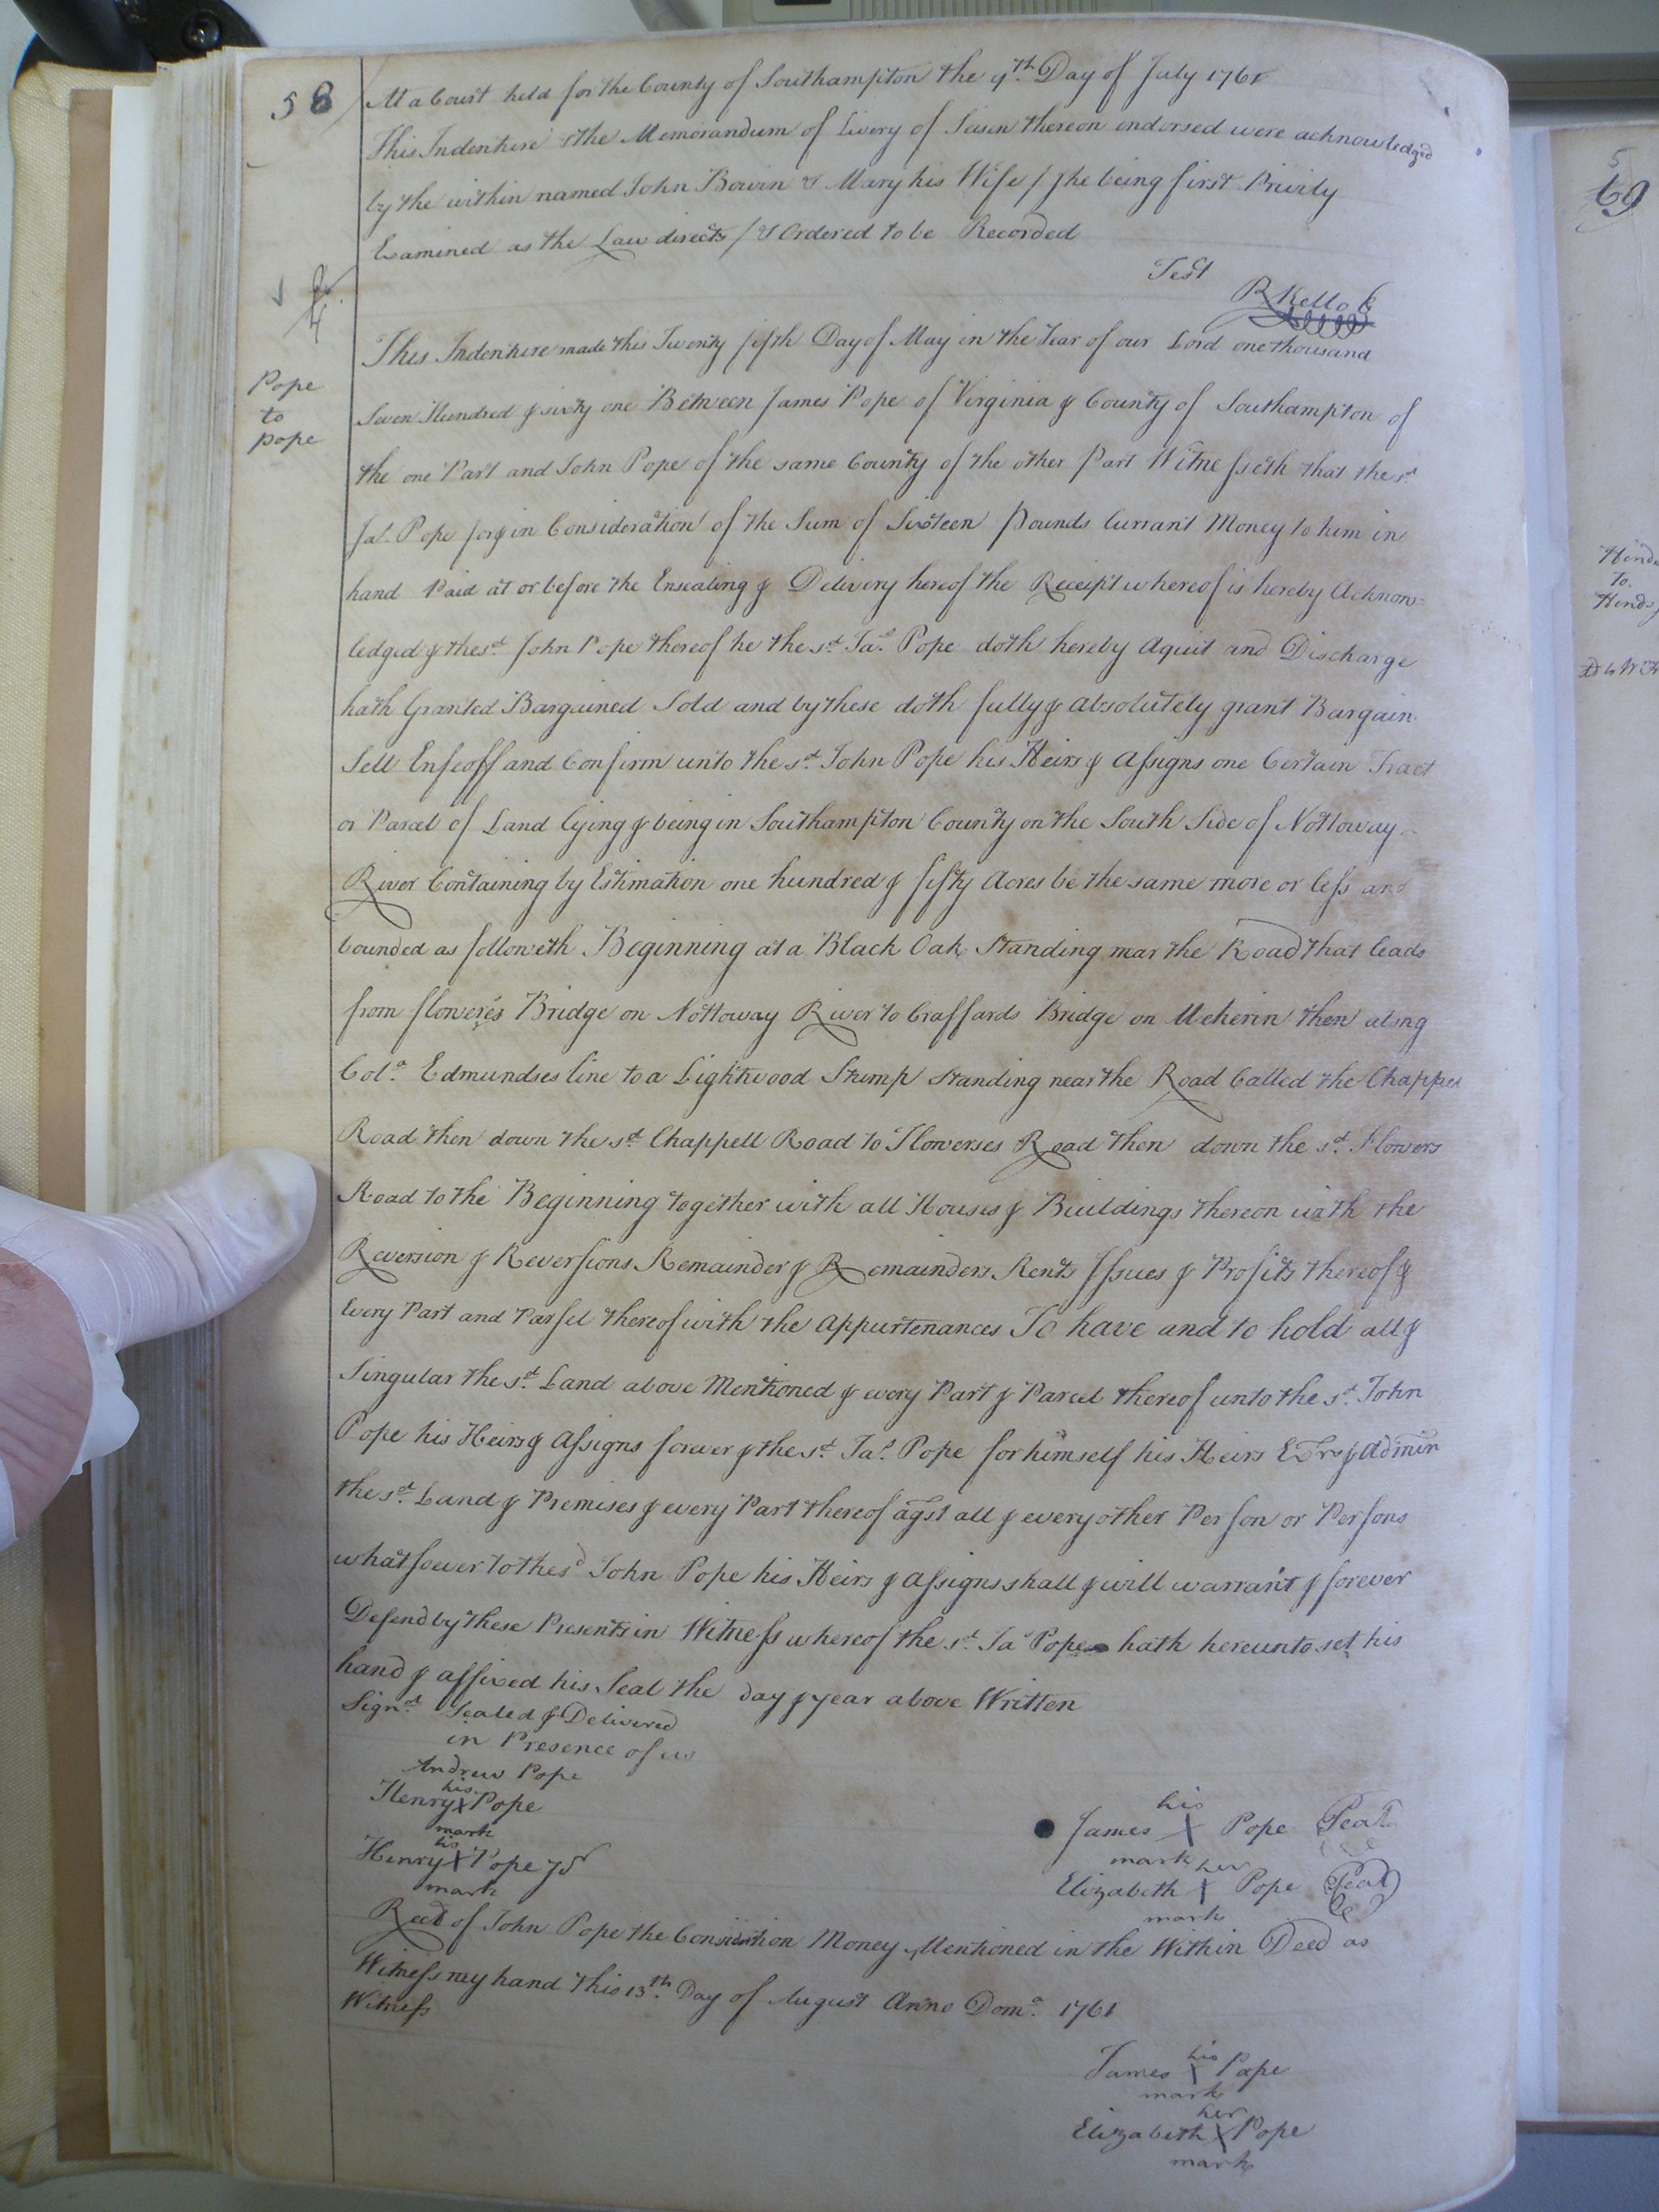 58
At a Court held for the County of Southampton the 9th Day of July 1761
This Indenture & the Memorandum of Livery of Seisen thereon endorsed were acknowledged
by the within named John Bowin & Mary his Wife / She being first Privily
Examined as the Law directs / & Ordered to be Recorded
Test
R Kello
Pope
to
pope
This Indenture made this Twenty fifth Day of May in the Year of our Lord one thousand
Seven Hundred & sixty one Between James Pope of Virginia & County of Southampton of
the one Part and John Pope of the same County of the other Part Witnesseth that the sd
Jas. Pope for & in Consideration of the Sum of Sixteen Pounds Currant Money to him in
hand Paid at or before the Ensealing & Delivery hereof the Receipt whereof is hereby Acknow=
ledged & the sd. John Pope thereof he the sd. Jas. Pope doth hereby aquit and Discharge
hath Granted Bargained Sold and by these doth fully & absolutely grant Bargain
Sell Enfeoff and Confirm unto the sd. John Pope his Heirs & Assigns one Certain Tract
or Parcel of Land lying & being in Southampton County on the South Side of Nottoway
River Containing by Estimation one hundred & fifty Acres be the same more or less and
bounded as followeth Beginning at a Black Oak Standing near the Road that leads
from flowers's Bridge on Nottoway River to Craffards Bridge on Meherin then along
Colo. Edmundses line to a Lightwood Stump standing near the Road Called the Chappel
Road then down the sd. Chappell Road to Flowerses Road then down the sd. Flowers
Road to the Beginning together with all Houses & Buildings thereon with the
Reversion & Reversions Remainder & Remainders Rents Issues & Profits thereof &
Every Part and Parsel thereof with the appurtenances To have and to hold all &
Singular the sd. Land above Mentioned & every Part & Parcel thereof unto the sd. John
Pope his Heirs & Assigns forever & the sd. Jas. Pope for himself his Heirs Exrs & Admin
the sd. Land & Premises & every Part thereof agst all & every other Person or Persons
whatsoever to the sd John Pope his Heirs & assigns shall & will warrant & forever
Defend by these Presents in Witness whereof the sd. Jas Pope hath hereunto set his
hand & affixed his Seal the day & year above Written
Signd. Sealed & Delivered
in Presence of us
Andrew Pope
his
Henry X Pope
mark
his
Henry X Pope Jr
mark
his
James X Pope Seal
mark
her
Elizabeth X Pope Seal
mark
Recd of John Pope the Consideration Money Mentioned in the Within Deed as
Witness my hand this 13th. Day of August Anno Domo. 1761
Witness
his
James X Pope
mark
her
Elizabeth X Pope
mark
59
to